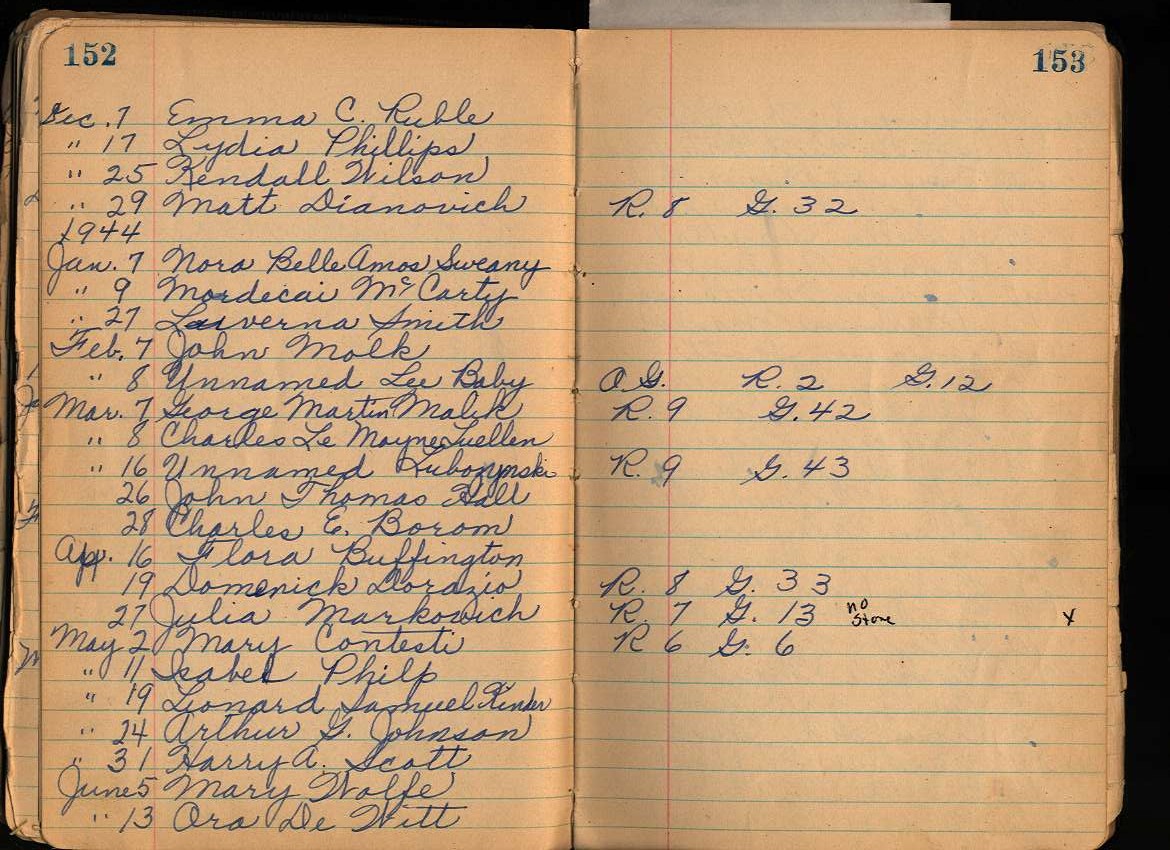 152
153
Dec. 7 Emma C. Ruble
" 17 Lydia Phillips
" 25 Kendall Wilson
" 29 Matt Dianovich R. 8 G. 32
1944
Jan. 7 Nora Belle Amos Sweany
" 9 Mordecai McCarty
" 27 Laverna Smith
Feb. 7 John Molk
" 8 Unnamed Lee Baby O.G. R. 2 G. 12
Mar. 7 George Martin Malik R. 9 G. 42
" 8 Charles Le Moyne Luellen
" 16 Unnamed R. 9 G. 43
26 John Thomas Hall
28 Charles E. Borom
Apr. 16 Flora Buffington
19 Domenick Dorazio R. 8 G. 33
27 Julia Markovich R. 7 G. 13 no stone x
May 2 Mary Contesti R 6 G. 6
" 11 Isabel Philp
" 19 Leonard Samuel Kinder
" 24 Arthur G. Johnson
" 31 Harry A. Scott
June 5 Mary Wolfe
" 13 Ora De Witt